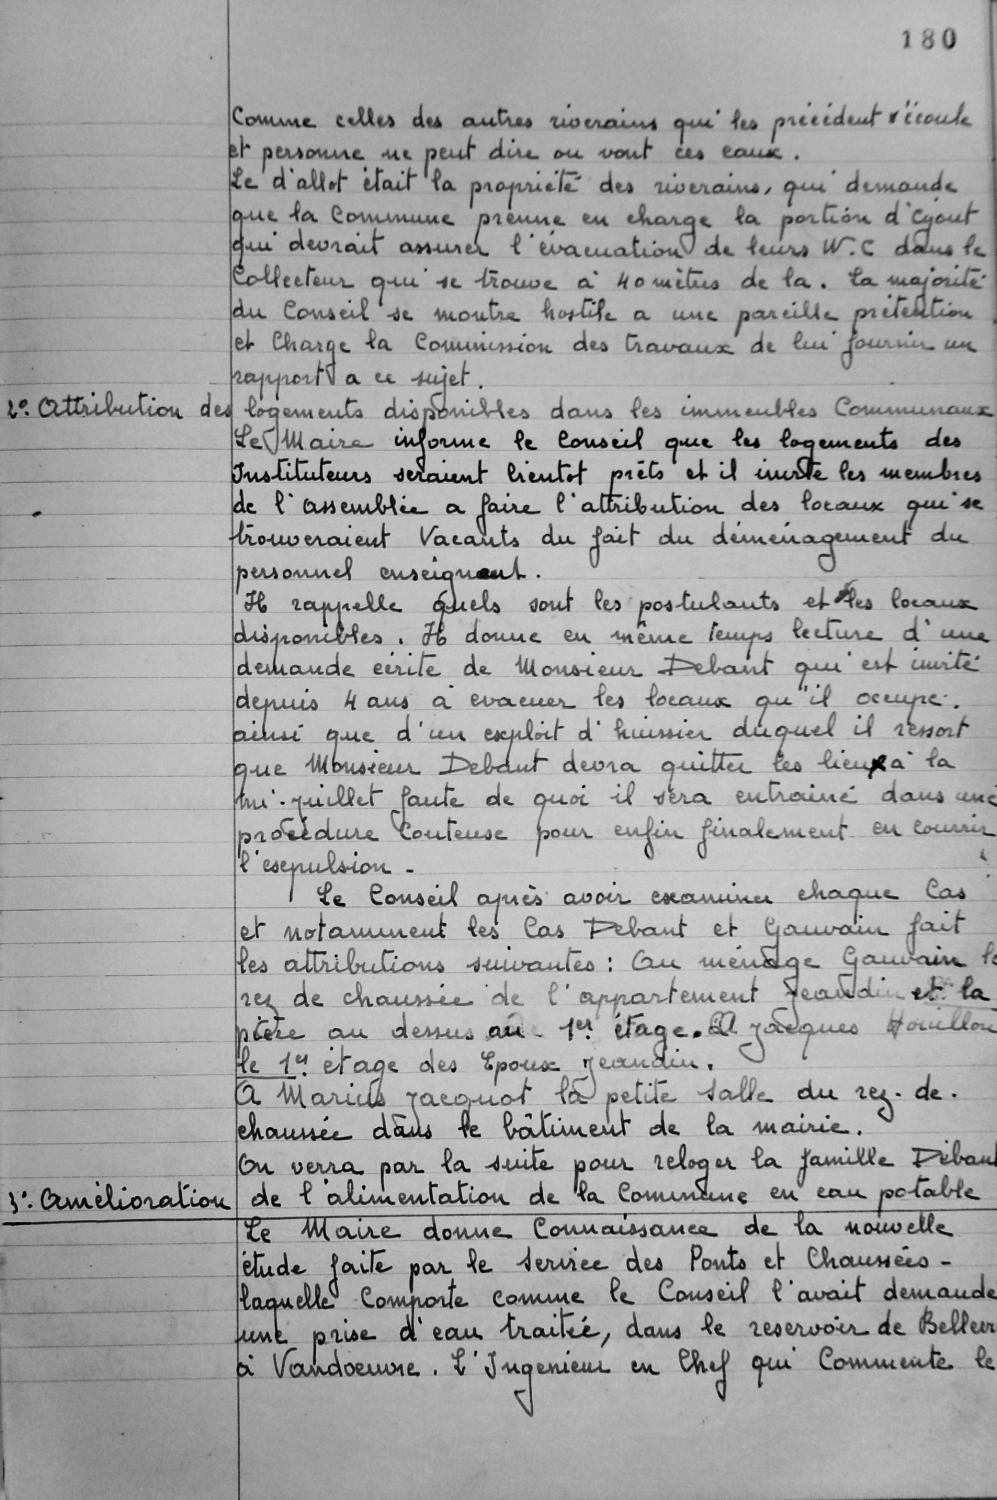 180
Comme celles des autres riverains qui les précédent s'écoule
et personne ne peut dire ou vont ces eaux.
Le d'allot était la propriété des riverains, qui demande
que la Commune prenne en charge la portion d'égout
qui devrait assurer l'évacuation de leurs W.C dans le
Collecteur qui se trouve à 40 mètres de la. la majorité
du Conseil se montre hostile a une pareille prétention
et Charge la Commission des travaux de lui fournir un
rapport a ce sujet.
2º. Attribution des logements disponibles dans les immeubles Communaux
Le Maire informe le Conseil que les logements des
Instituteurs seraient bientot prêts et il invite les membres
de l'assemblée a faire l'attribution des locaux qui se
trouveraient Vacants du fait du déménagement du
personnel enseignant.
Il rappelle quels sont les postulants et les locaux
disponibles. Il donne en même temps lecture d'une
demande écrite de Monsieur Debant qui est invité
depuis 4 ans à evacuer les locaux qu'il occupe.
ainsi que d'un exploit d'huissier duquel il ressort
que Monsieur Debant devra quitter les lieux à la
mi-juillet faute de quoi il sera entrainé dans une
procédure Couteuse pour enfin finalement en courrir
l'expulsion -
Le Conseil après avoir examiner chaque Cas
et notamment les Cas Debant et Gauvain fait
les attributions suivantes : Au ménage Gauvain le
rez de chaussée de l'appartement Jeandin et la
pièce au dessus au 1er étage. A Jacques Houillon
le 1er étage des Epoux Jeandin.
A Marius Jacquot la petite Salle du rez. de.
chaussée dans le bâtiment de la mairie.
On verra par la suite pour reloger la famille Débant
3º. Amélioration de l'alimentation de la Commune en eau potable
Le Maire donne Connaissance de la nouvelle
étude faite par le Service des Ponts et Chaussées -
laquelle Comporte comme le Conseil l'avait demande
une prise d'eau traitée, dans le reservoir de
à Vandoeuvre. L'Ingenieur en Chef qui Commente le